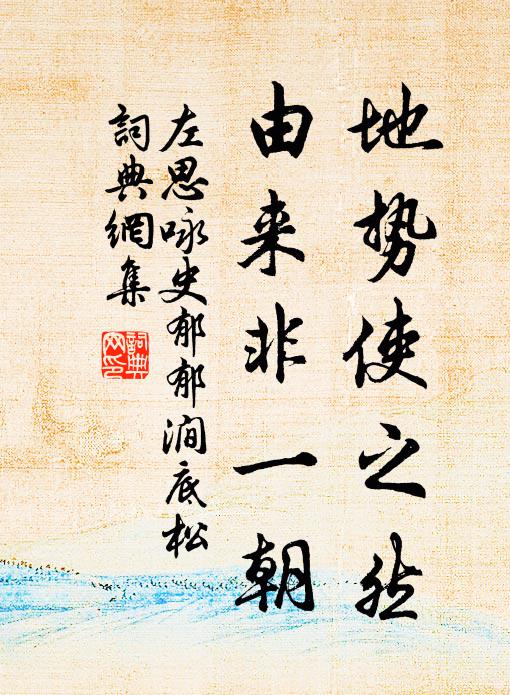 地势使之然
由来非一朝
左思咏史郁郁涧底松
词典網集
詞典網印